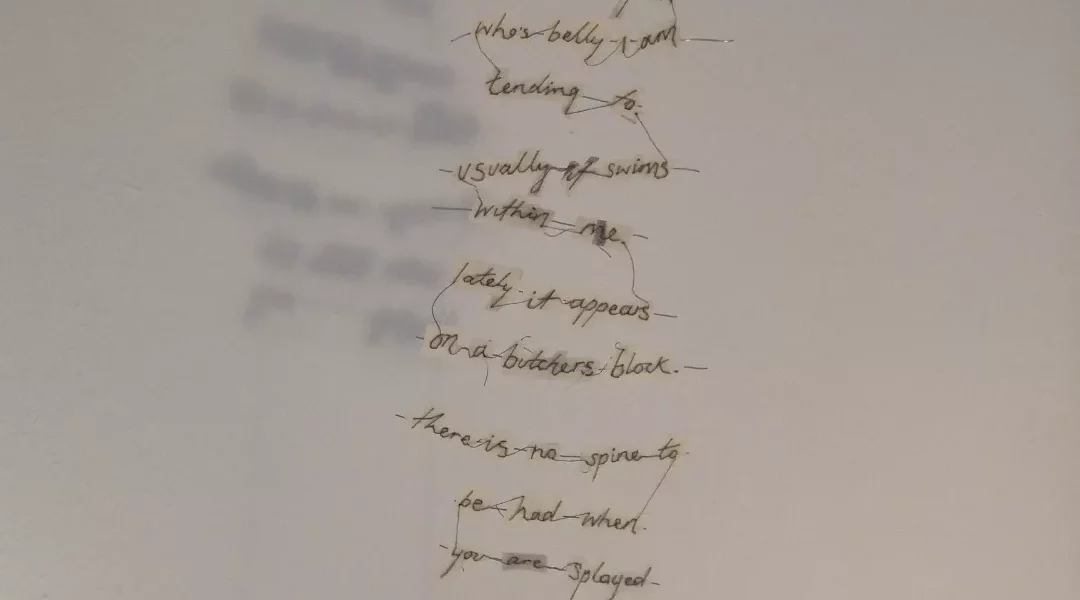 who's belly I am
tending to.
usually it swims
within me.
lately it appears
on a butchers block.
there is no spine to
be had when
you are splayed